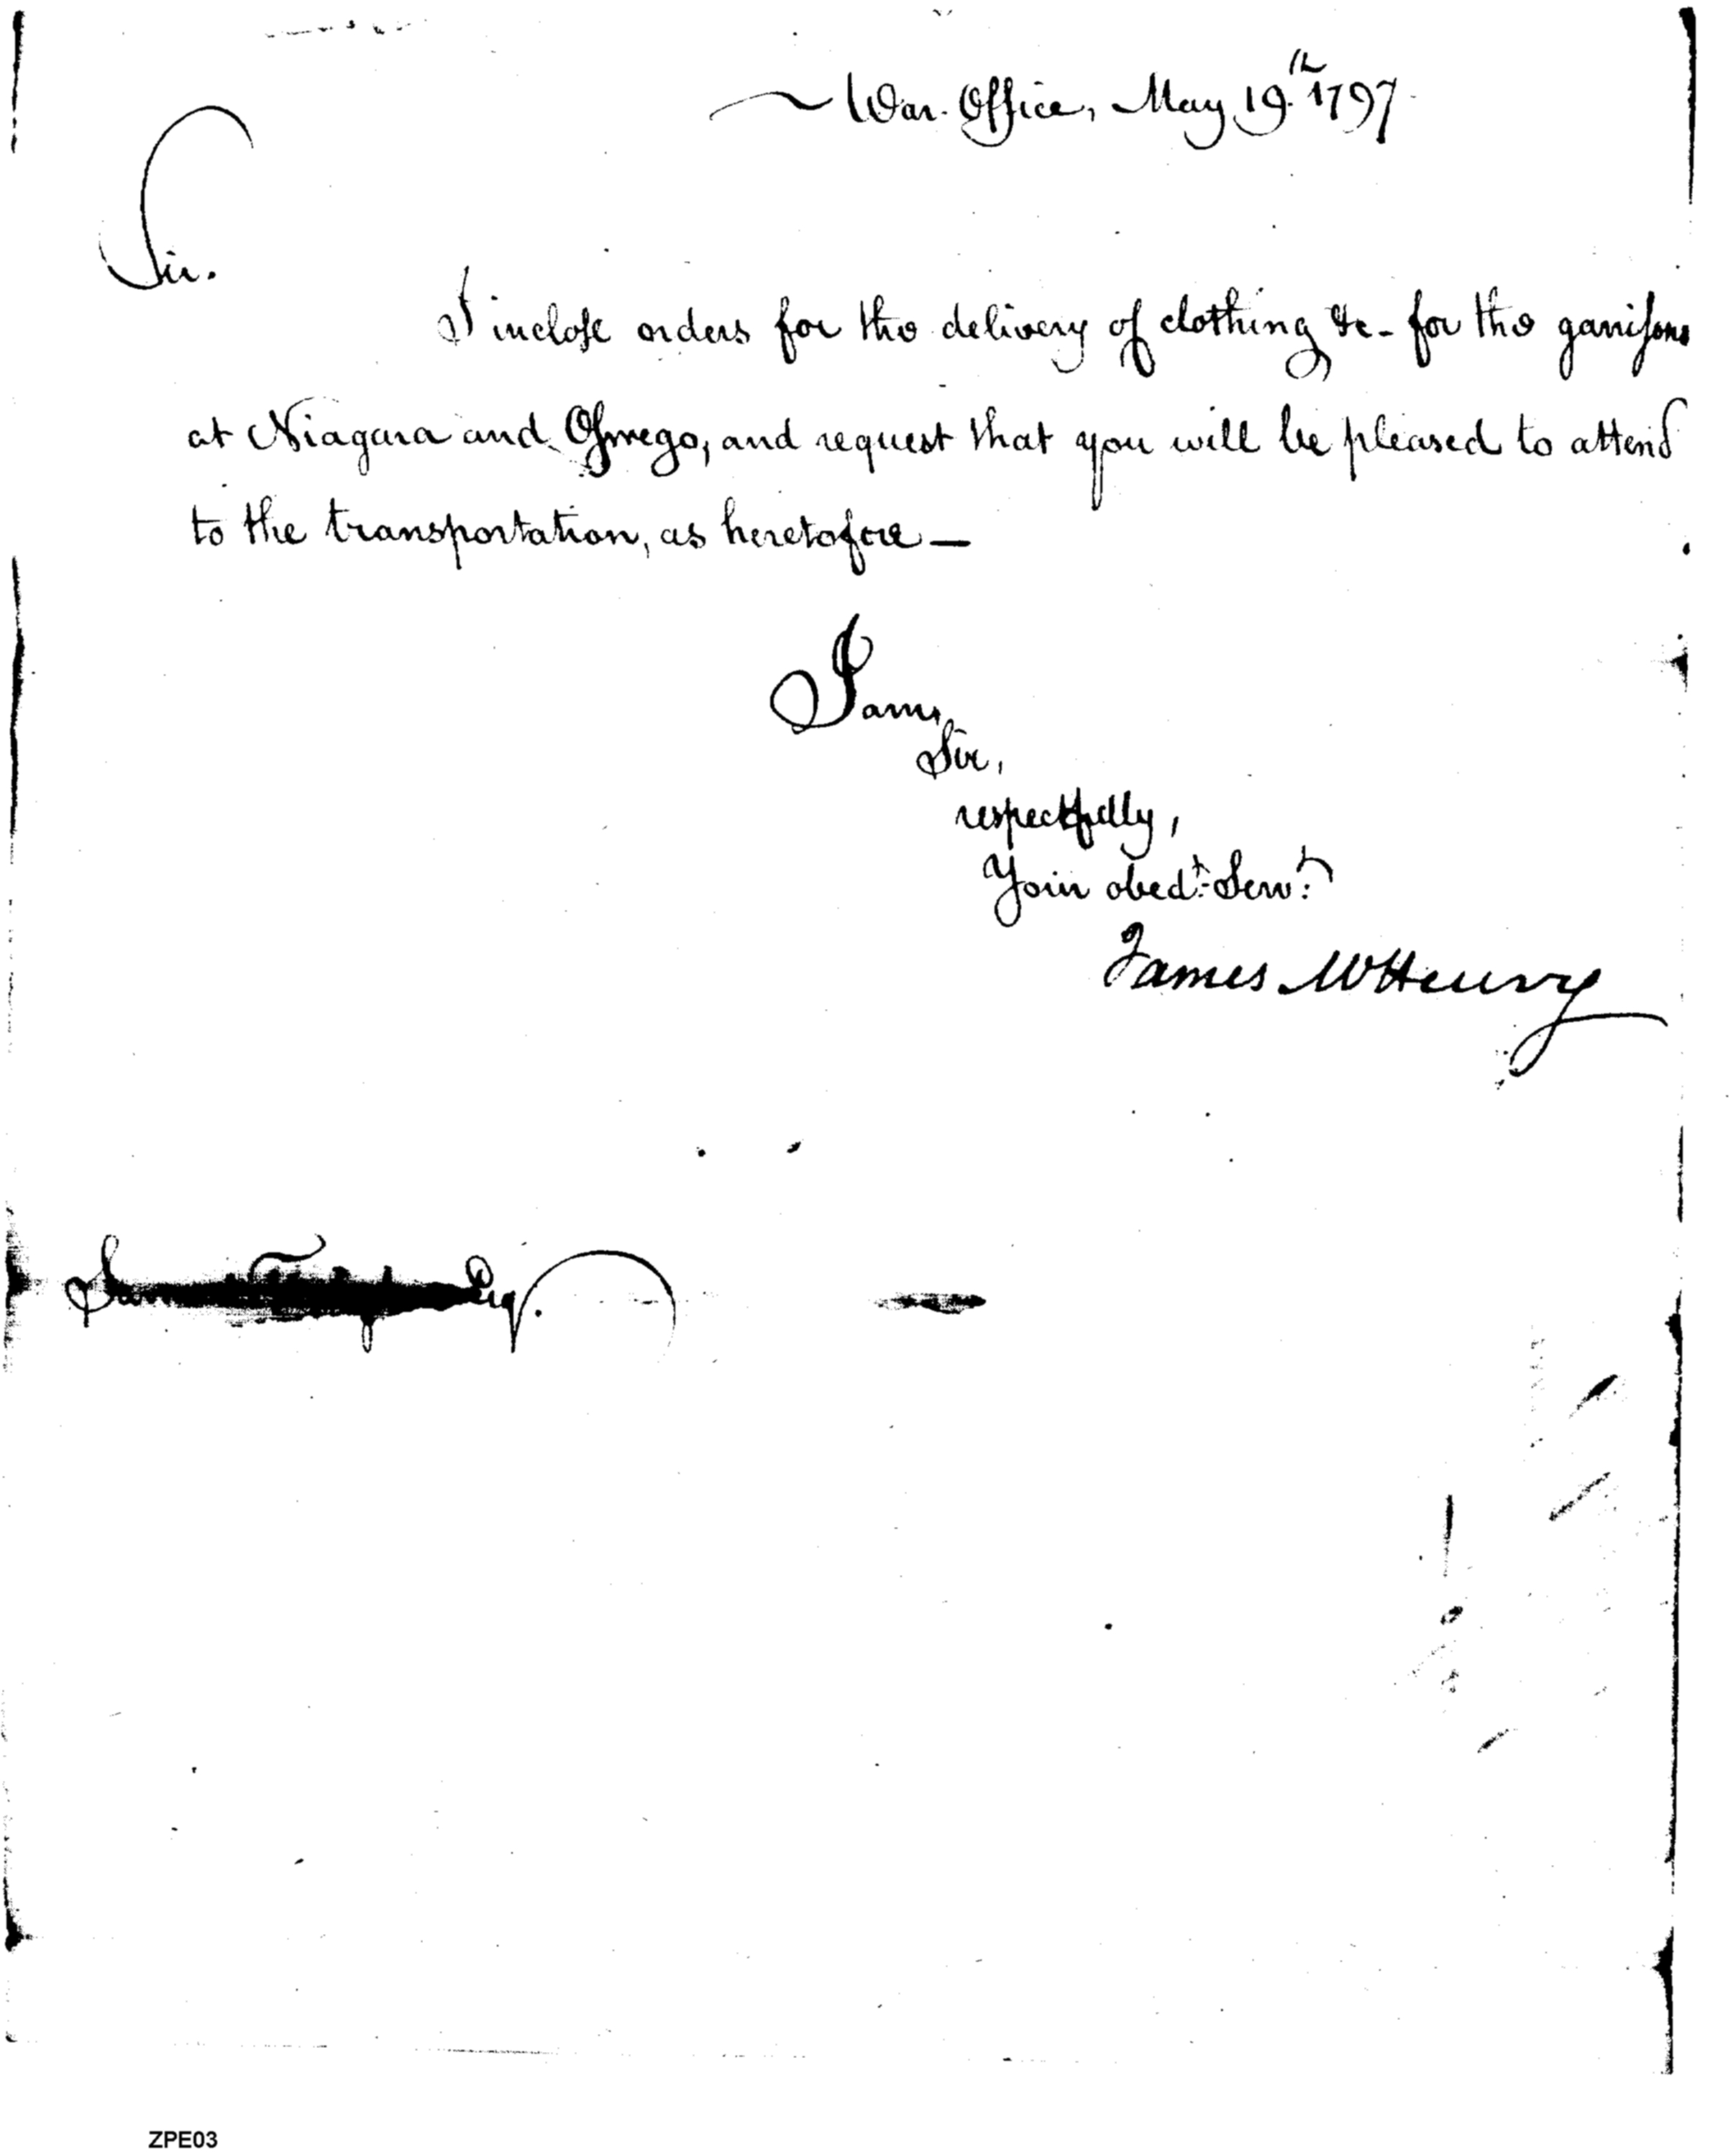 War Office, May 19th 1797
Sir.
I inclose orders for the delivery of clothing &c- for the garrisons
at Niagara and Oswego, and request that you will be pleased to attend
to the transportation, as heretofore —
I am,
Sir,
respectfully,
Your obedt. Servt.
James McHenry
Esq.
ZPE03